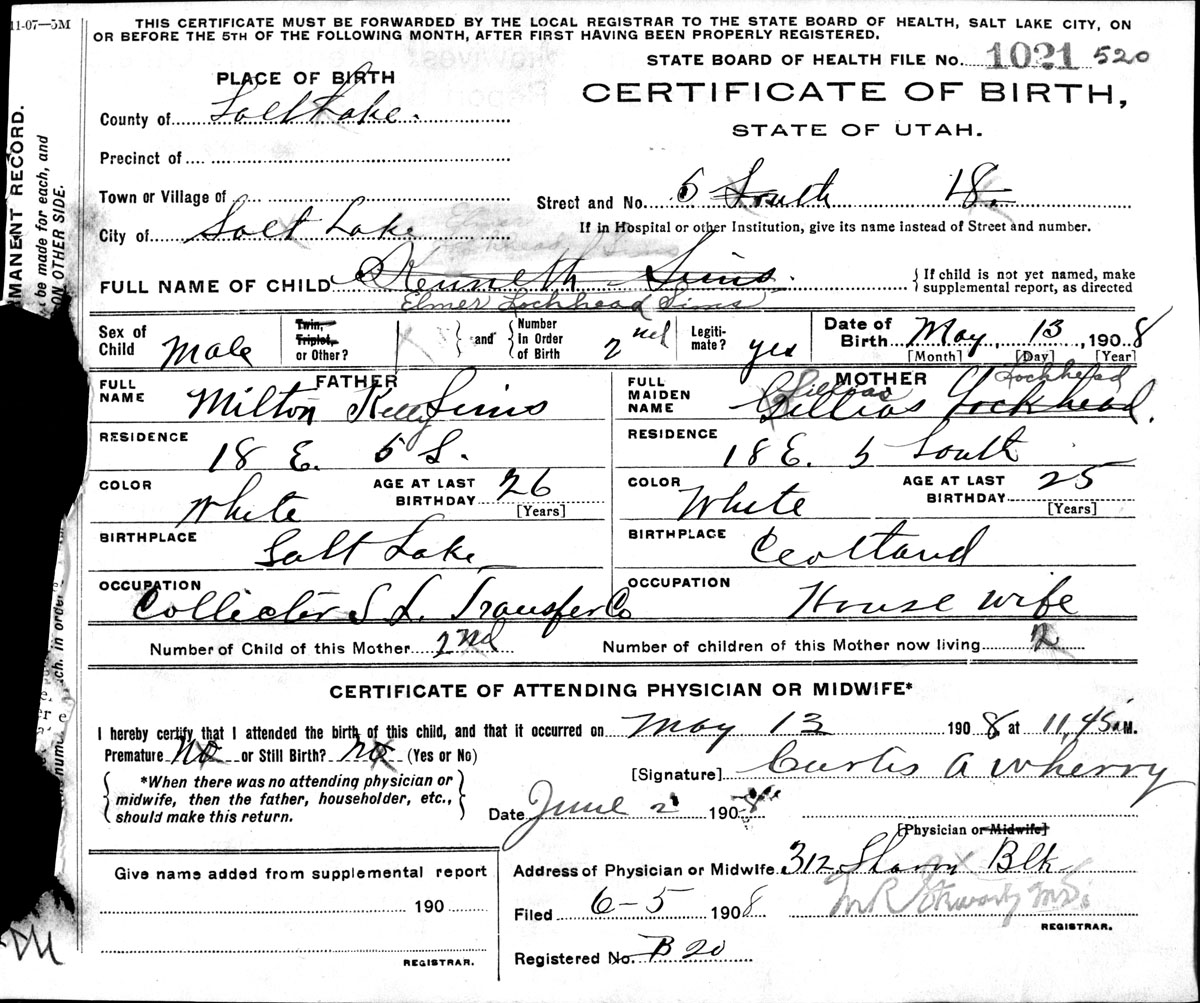 11-07—5M
THIS CERTIFICATE MUST BE FORWARDED BY THE LOCAL REGISTRAR TO THE STATE BOARD OF HEALTH, SALT LAKE CITY, ON
OR BEFORE THE 5TH OF THE FOLLOWING MONTH, AFTER FIRST HAVING BEEN PROPERLY REGISTERED.
STATE BOARD OF HEALTH FILE No. 1021 520
PLACE OF BIRTH
CERTIFICATE OF BIRTH,
STATE OF UTAH.
County of Salt Lake.
Precinct of
Town or Village of
Street and No. 5 South 18.
City of Salt Lake
If in Hospital or other Institution, give its name instead of Street and number.
FULL NAME OF CHILD Kenneth Sims. { If child is not yet named, make supplemental report, as directed
Elmer Lockhead Sims
Sex of Child Male Twin, Triplet, or Other? } and { Number In Order of Birth 2nd Legitimate? yes Date of Birth May, 13, 1908
[Month] [Day] [Year]
FATHER
MOTHER Lockhead
FULL NAME Milton Kelly Sims
FULL MAIDEN NAME Lillias Lockhead.
RESIDENCE 18 E. 5 S.
RESIDENCE 18 E. 5 South
COLOR White AGE AT LAST BIRTHDAY 26 [Years]
COLOR White AGE AT LAST BIRTHDAY 25 [Years]
BIRTHPLACE Salt Lake
BIRTHPLACE Scotland
OCCUPATION Collector S L. Transfer Co
OCCUPATION House wife
Number of Child of this Mother 2nd
Number of children of this Mother now living 2
CERTIFICATE OF ATTENDING PHYSICIAN OR MIDWIFE*
I hereby certify that I attended the birth of this child, and that it occurred on May 13 1908 at 11,45 M.
Premature No or Still Birth? No (Yes or No)
*When there was no attending physician or
midwife, then the father, householder, etc.,
should make this return.
[Signature] Curtis A Wherry
Date June 2 1908
[Physician or Midwife]
Address of Physician or Midwife 312 Blk
Give name added from supplemental report
190
REGISTRAR.
Filed 6-5 1908
REGISTRAR.
Registered No. B 20
MANENT RECORD.
be made for each, and
ON OTHER SIDE.